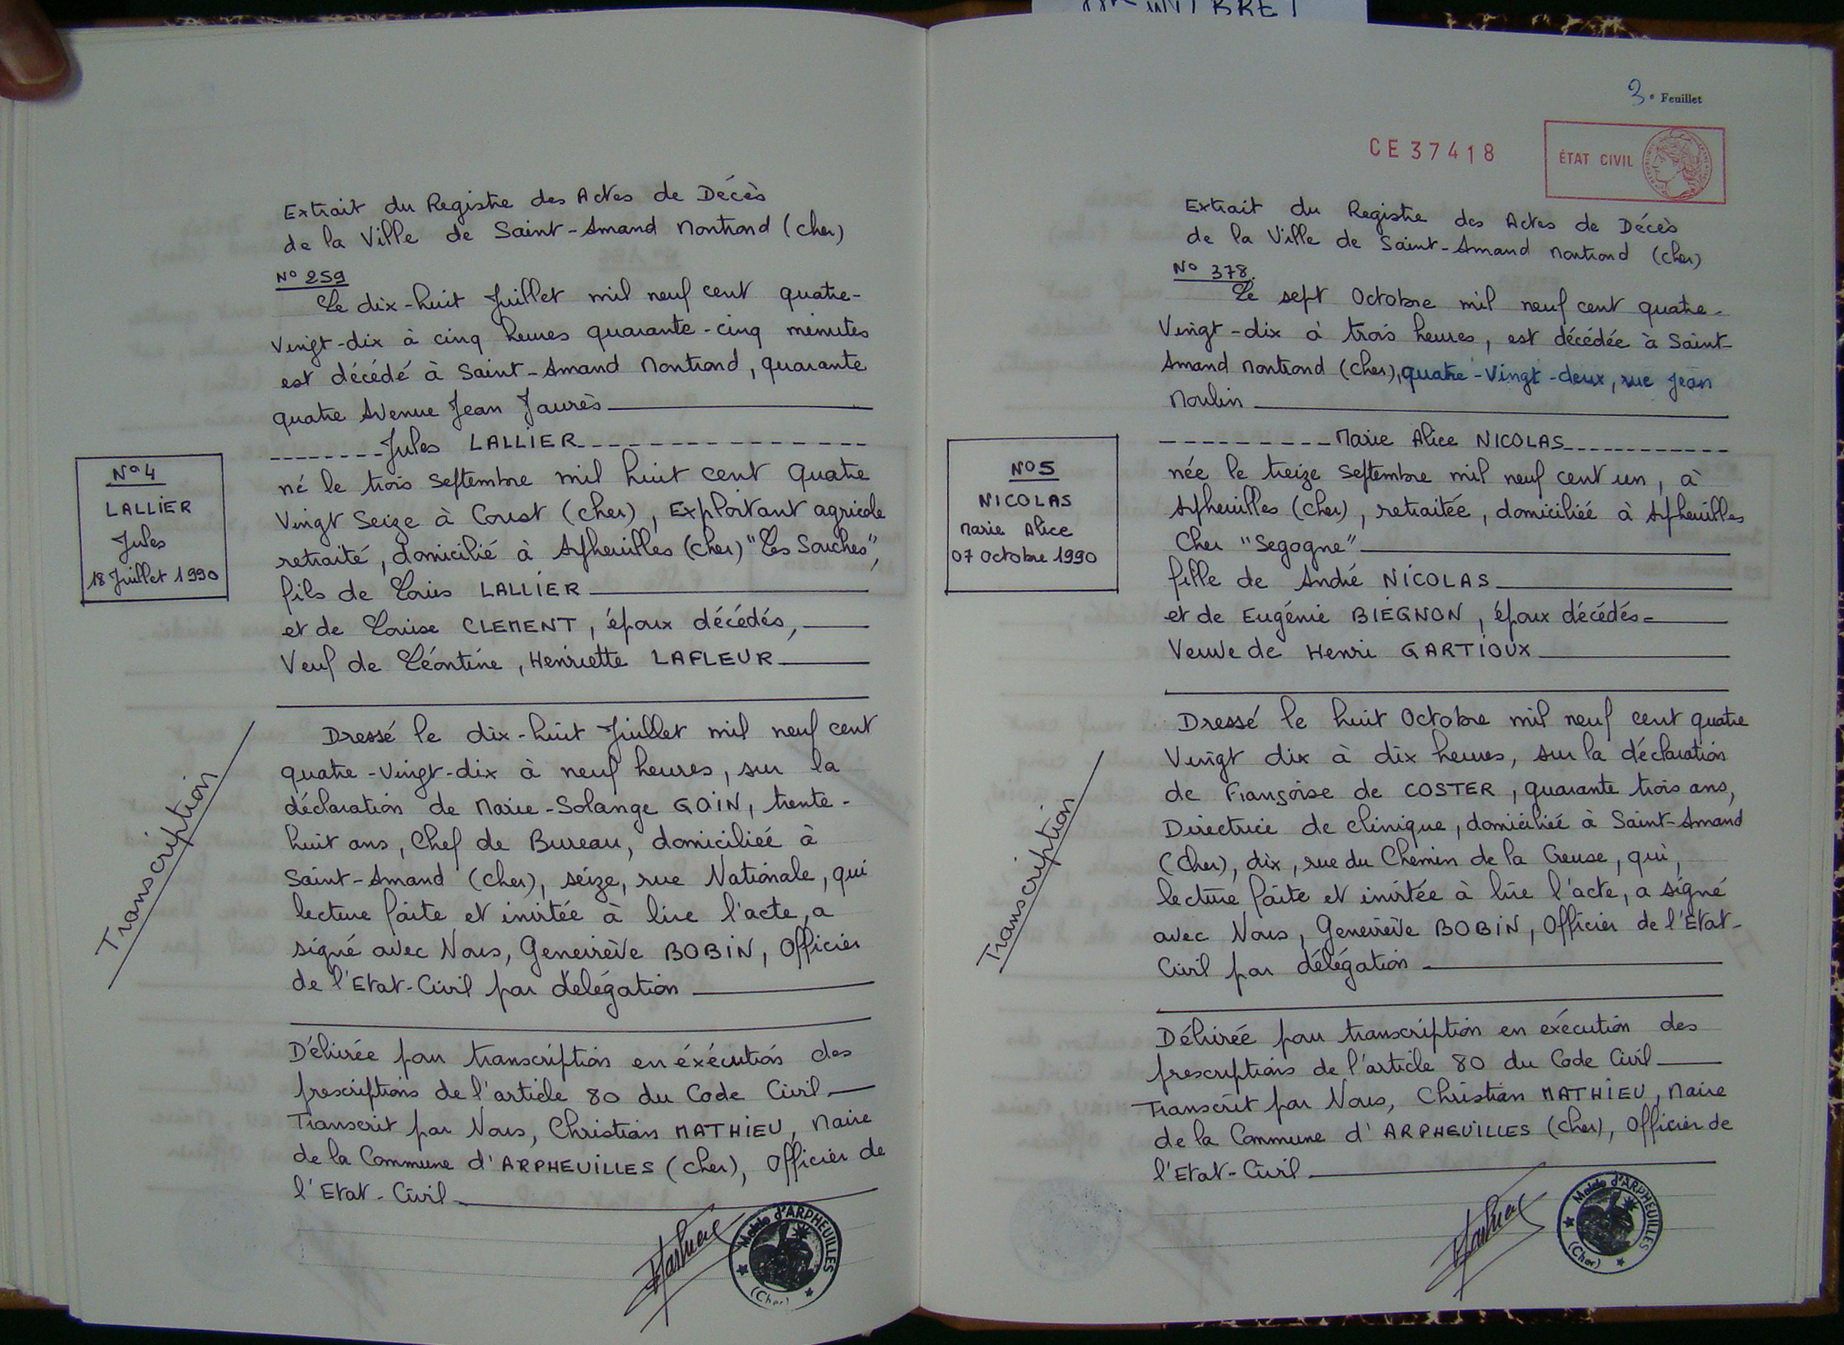 Extrait du Registre des Actes de Décès
de la Ville de Saint-Amand Montrond (cher)
N° 259
Le dix-huit Juillet mil neuf cent quatre-
Vingt-dix à cinq heures quarante-cinq minutes
est décédé à Saint-Amand Montrond, quarante
quatre Avenue Jean Jaurès
Jules LALLIER
né le trois Septembre mil huit cent quatre
Vingt Seize à Coust (cher), Exploitant agricole
retraité, domicilié à Arpheuilles (cher) "Les Souches",
fils de Louis LALLIER
et de Louise CLEMENT, époux décédés,
Veuf de Léontine, Henriette LAFLEUR
N°4
LALLIER
Jules
18 Juillet 1990
Transcription
Dressé le dix-huit Juillet mil neuf cent
quatre-Vingt-dix à neuf heures, sur la
déclaration de Marie-Solange GOIN, trente-
huit ans, Chef de Bureau, domiciliée à
Saint-Amand (cher), seize, rue Nationale, qui
lecture faite et invitée à lire l'acte, a
signé avec Nous, Geneviève BOBIN, Officier
de l'Etat-Civil par délégation
Délivrée pour transcription en éxécution des
prescriptions de l'article 80 du Code Civil
Transcrit par Nous, Christian MATHIEU, Maire
de la Commune d'ARPHEUILLES (cher), Officier de
l'Etat-Civil
Mairie d'ARPHEUILLES
(Cher)
3e Feuillet
CE 37418
ÉTAT CIVIL
Extrait du Registre des Actes de Décès
de la Ville de Saint-Amand Montrond (cher)
N° 378
Le sept Octobre mil neuf cent quatre-
Vingt-dix à trois heures, est décédée à Saint-
Amand Montrond (cher), quatre-Vingt-deux, rue Jean
Moulin
Marie Alice NICOLAS
née le treize Septembre mil neuf cent un, à
Arpheuilles (cher), retraitée, domiciliée à Arpheuilles
Cher "Segogne"
fille de André NICOLAS
et de Eugénie BIÉGNON, époux décédés
Veuve de Henri GARTIOUX
N°5
NICOLAS
Marie Alice
07 Octobre 1990
Transcription
Dressé le huit Octobre mil neuf cent quatre
Vingt dix à dix heures, sur la déclaration
de Françoise de COSTER, quarante trois ans,
Directrice de clinique, domiciliée à Saint-Amand
(Cher), dix, rue du Chemin de la Creuse, qui,
lecture faite et invitée à lire l'acte, a signé
avec Nous, Geneviève BOBIN, Officier de l'Etat-
Civil par délégation
Délivrée pour transcription en exécution des
prescriptions de l'article 80 du Code Civil
Transcrit par Nous, Christian MATHIEU, Maire
de la Commune d'ARPHEUILLES (cher), Officier de
l'Etat-Civil
Mairie d'ARPHEUILLES
(Cher)